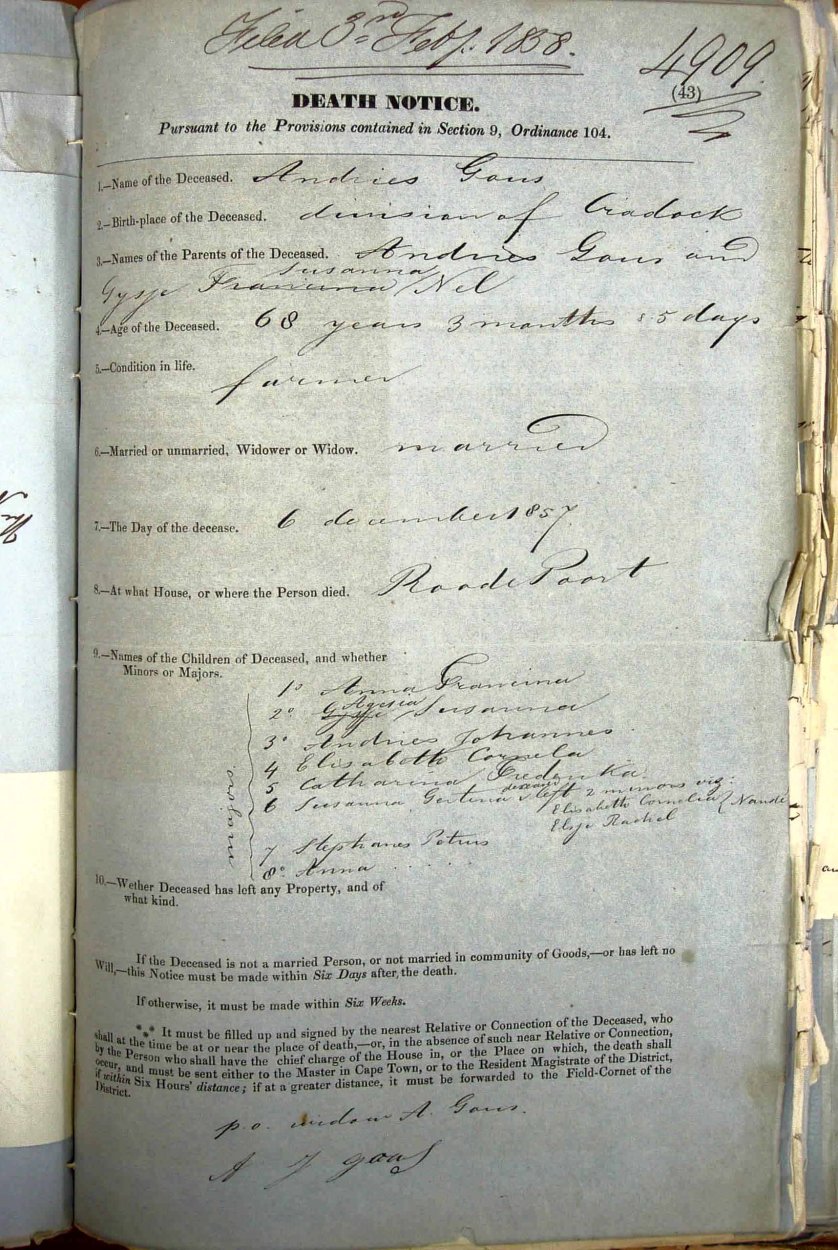 Filed 3rd Feby. 1858.
4909
(43)
DEATH NOTICE.
Pursuant to the Provisions contained in Section 9, Ordinance 104.
1.—Name of the Deceased. Andries Gous
2.—Birth-place of the Deceased. division of Cradock
3.—Names of the Parents of the Deceased. Andries Gous and
Susanna
Gysje Francina Nel
4.—Age of the Deceased. 68 years 3 months & 5 days
5.—Condition in life.
farmer
6.—Married or unmarried, Widower or Widow. married
7.—The Day of the decease. 6 december 1857.
8.—At what House, or where the Person died. Roode Poort
9.—Names of the Children of Deceased, and whether
Minors or Majors.
majors
1° Anna Francina
2° Gysje Agesia Susanna
3° Andries Johannes
4 Elisabeth Cornela
5 Catharina Fredrika
6 Susanna Gertina deceased & left 2 minors viz:
Elisabeth Cornelia
Elsje Rachel
7 Stephanes Petrus
8° Anna
10.—Wether Deceased has left any Property, and of
what kind.
If the Deceased is not a married Person, or not married in community of Goods,—or has left no
Will,—this Notice must be made within Six Days after, the death.
If otherwise, it must be made within Six Weeks.
*** It must be filled up and signed by the nearest Relative or Connection of the Deceased, who
shall at the time be at or near the place of death,—or, in the absence of such near Relative or Connection,
by the Person who shall have the chief charge of the House in, or the Place on which, the death shall
occur, and must be sent either to the Master in Cape Town, or to the Resident Magistrate of the District,
if within Six Hours' distance; if at a greater distance, it must be forwarded to the Field-Cornet of the
District.
p.o. widow A. Gous.
A J gous